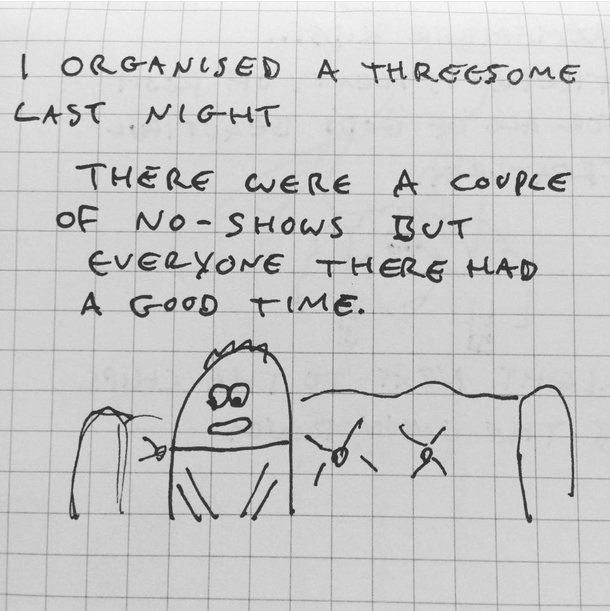 I ORGANISED A THREESOME
LAST NIGHT
THERE WERE A COUPLE
OF NO-SHOWS BUT
EVERYONE THERE HAD
A GOOD TIME.